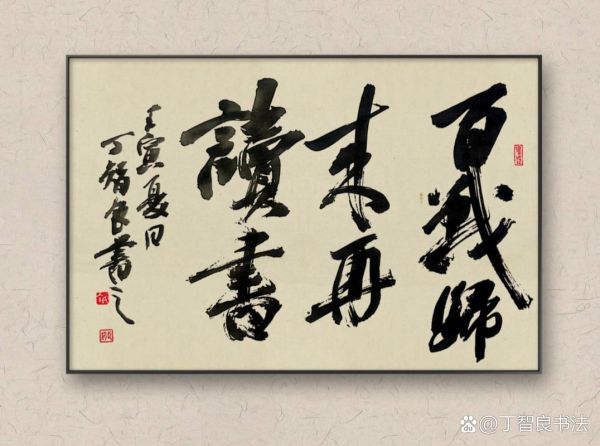 百戰歸
来再
讀書
壬寅夏日
丁智良書之
丁智良书法